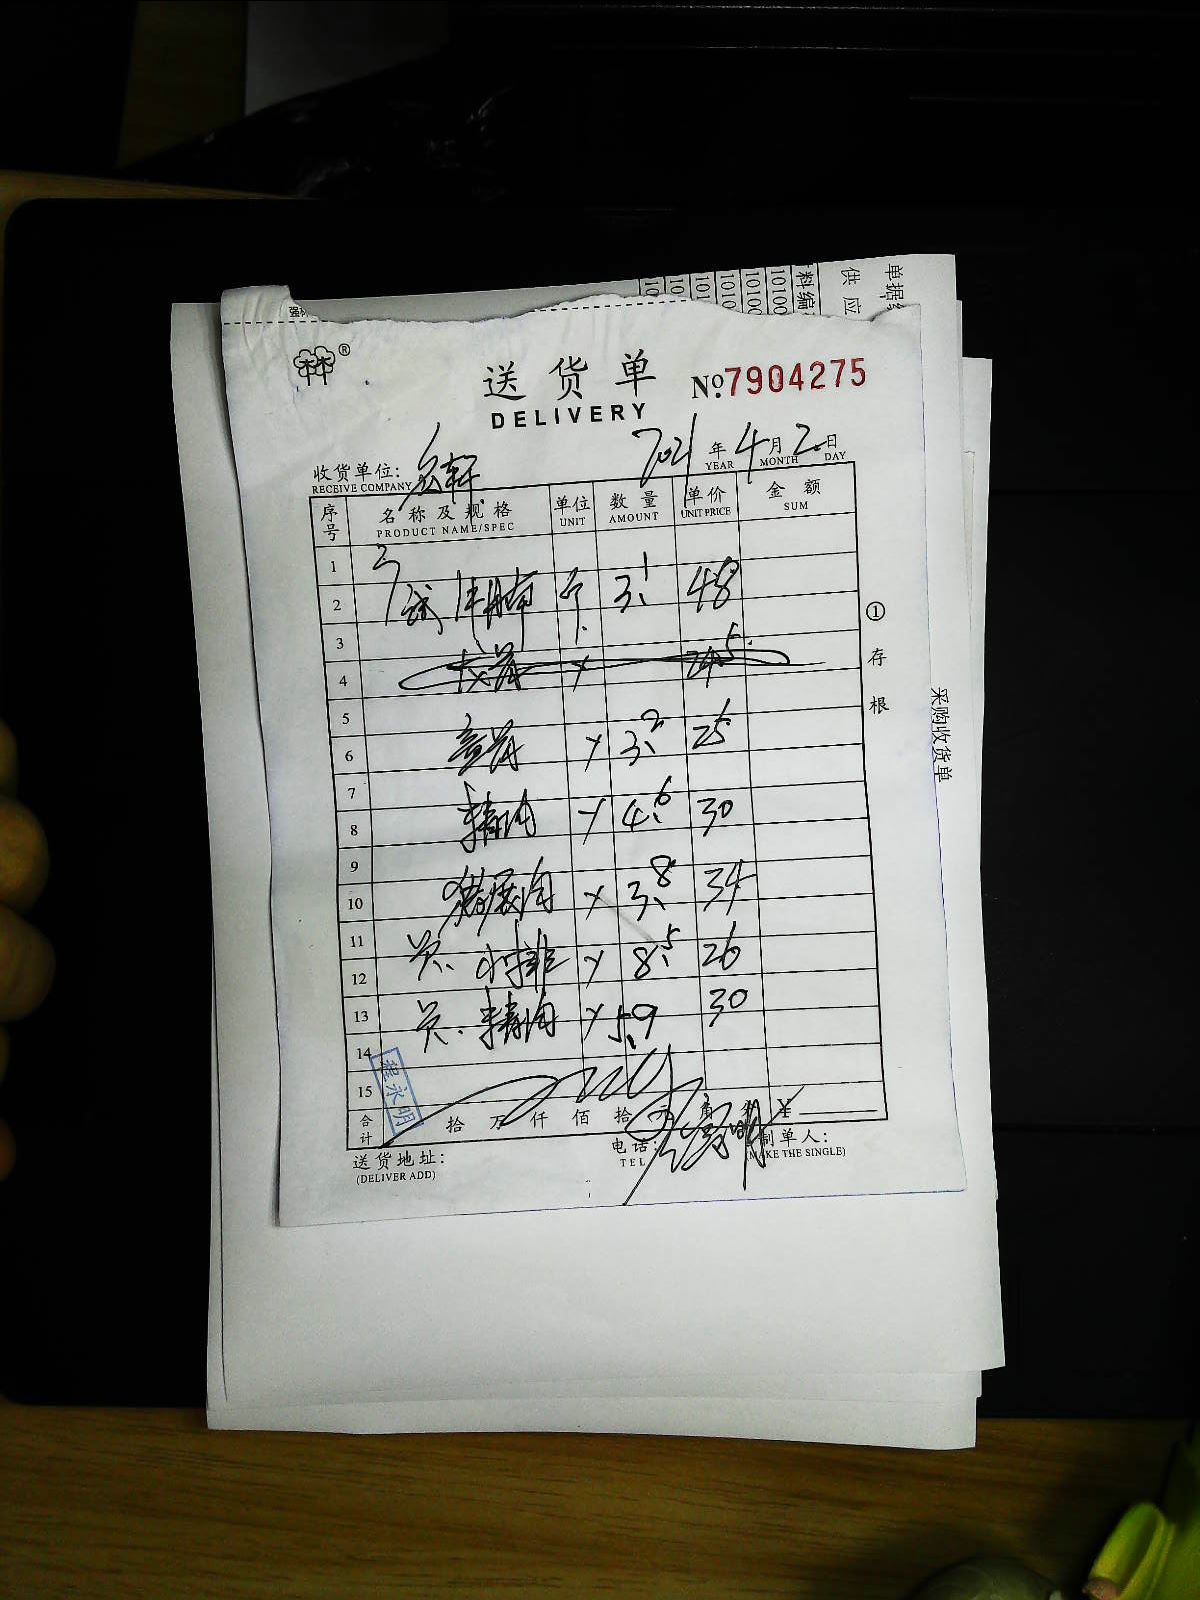 单据编
供应
料编
10100
10100
1010
101
10
10
强林
®
送货单
DELIVERY
No.7904275
2021年4月2日
YEAR MONTH DAY
收货单位:
RECEIVE COMPANY
序号 名称及规格 单位 数量 单价 金额
PRODUCT NAME/SPEC UNIT AMOUNT UNIT PRICE SUM
1
2 牛腩 斤 3.1 48
3
4 24.5
5
6 3.2 25
7
8 精肉 4.6 30
9
10 猪展肉 3.8 34
11
12 员.小排 8.5 26
13 员.精肉 5.9 30
14
15
程永明
合计 拾 万 仟 佰 拾 元 角 ¥
送货地址:
(DELIVER ADD)
电话:
TEL
制单人:
(MAKE THE SINGLE)
①存根
采购收货单